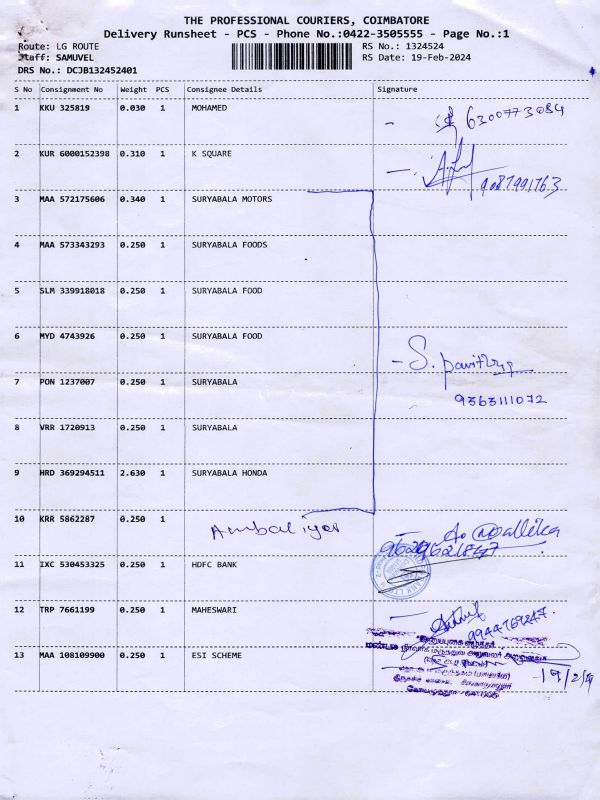 THE PROFESSIONAL COURIERS, COIMBATORE
Delivery Runsheet - PCS - Phone No.:0422-3505555 - Page No.:1
Route: LG ROUTE RS No.: 1324524
Staff: SAMUVEL RS Date: 19-Feb-2024
DRS No.: DCJB132452401
S No Consignment No Weight PCS Consignee Details Signature
1 KKU 325819 0.030 1 MOHAMED - 6300773084
2 KUR 6000152398 0.310 1 K SQUARE - 9087991763
3 MAA 572175606 0.340 1 SURYABALA MOTORS
4 MAA 573343293 0.250 1 SURYABALA FOODS
5 SLM 339918018 0.250 1 SURYABALA FOOD
6 MYD 4743926 0.250 1 SURYABALA FOOD
- S. pavithra
7 PON 1237007 0.250 1 SURYABALA 9363111072
8 VRR 1720913 0.250 1 SURYABALA
9 HRD 369294511 2.630 1 SURYABALA HONDA
10 KRR 5862287 0.250 1 Ambaliyar
A. Mallika
11 IXC 530453325 0.250 1 HDFC BANK
12 TRP 7661199 0.250 1 MAHESWARI 9944769247
13 MAA 108109900 0.250 1 ESI SCHEME
19/2/24